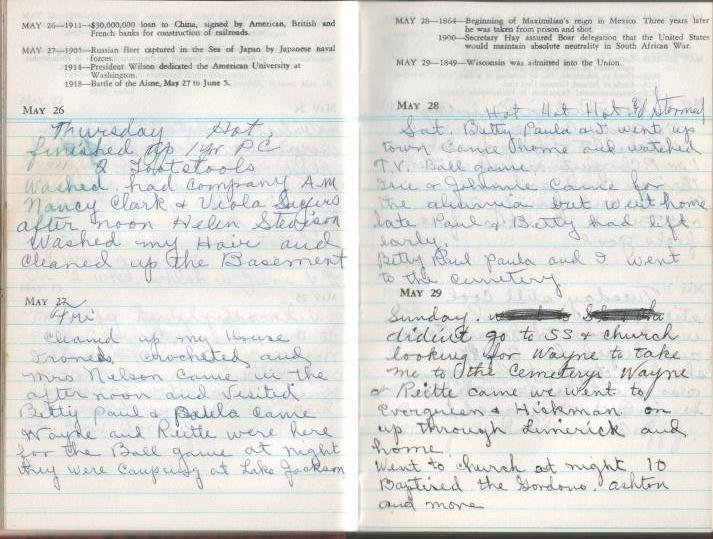 MAY 26—1911—$30,000,000 loan to China, signed by American, British and
French banks for construction of railroads.
MAY 27—1905—Russian fleet captured in the Sea of Japan by Japanese naval
forces.
1914—President Wilson dedicated the American University at
Washington.
1918—Battle of the Aisne, May 27 to June 5.
MAY 26
Thursday Hot,
finished up 1 yr PC
2 Footstools
Washed, had company A.M
Nancy Clark & Viola
after noon Helen
Washed my Hair and
cleaned up the Basement
MAY 27
Fri
Cleaned up my House
Ironed crocheted and
Mrs Nelson came in the
after noon and visited
Betty Paul & Paula came
Wayne and Reitte were here
for the Ball game at night
they were camping at Lake Jackson
MAY 28—1864—Beginning of Maximilian's reign in Mexico. Three years later
he was taken from prison and shot.
1900—Secretary Hay assured Boer delegation that the United States
would maintain absolute neutrality in South African War.
MAY 29—1849—Wisconsin was admitted into the Union.
MAY 28
Hot Hot Hot & Stormed
Sat. Betty Paula & I went up
town came home and watched
T.V. Ball game.
& Johnnie came for
the but went home
late Paul & Betty had left
early.
Betty Paul Paula and I went
to the cemetery
MAY 29
Sunday.
didn't go to SS & church
looking for Wayne to take
me to the Cemeterys Wayne
& Reitte came we went to
Evergreen & Hickman on
up through Limerick and
home.
Went to church at night 10
Baptired the Gordons. ashton
and more